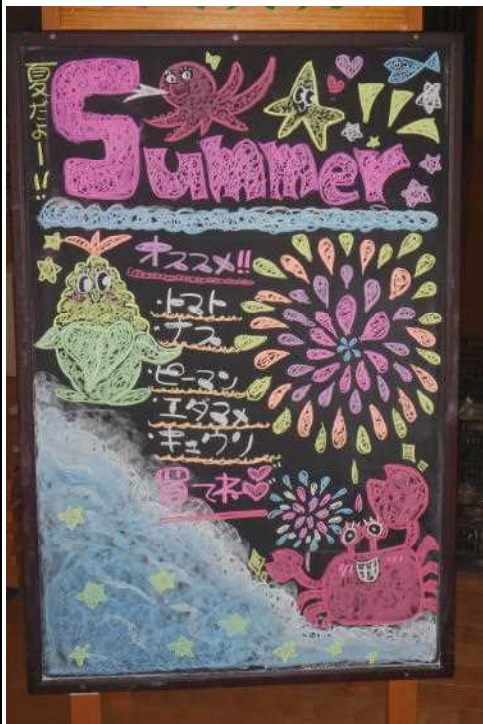 夏だよー!!
Summer
オススメ!!
・トマト
・ナス
・ピーマン
・エダマメ
・キュウリ
買ってね♡